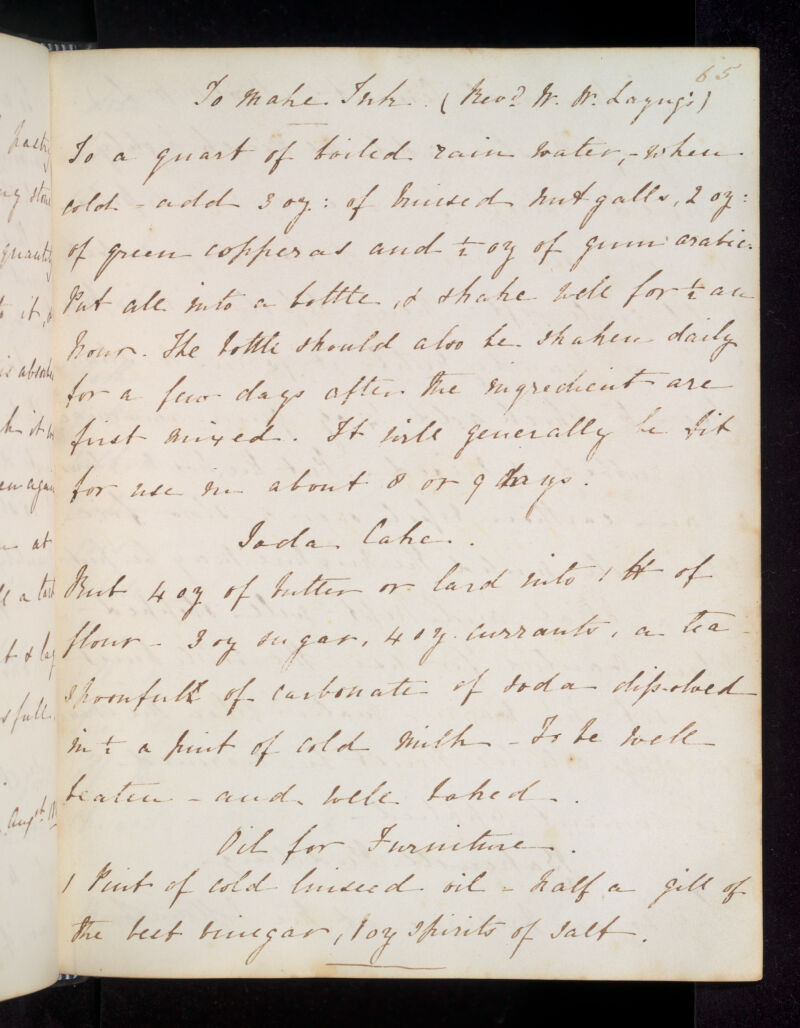 65
To make Ink. (Revd. W. W. Layng's)
To a quart of boiled rain water, - when
cold - add 3 oz: of bruised nut galls, 2 oz:
of green copperas and ½ oz of gum arabic.
Put all into a bottle, & shake well for ½ an
hour. The bottle should also be shaken daily
for a few days after the ingredient are
first mixed. It will generally be fit
for use in about 8 or 9 days.
Soda Cake.
Rub 4 oz of butter or lard into 1 lb of
flour - 3 oz sugar, 4 oz. currants, a tea-
spoonful of carbonate of soda dissolved
in ½ a pint of cold milk - To be well
beaten - and well baked.
Oil for Furniture.
1 Pint of cold linseed oil - half a gill of
the best vinegar, 1 oz spirits of salt.